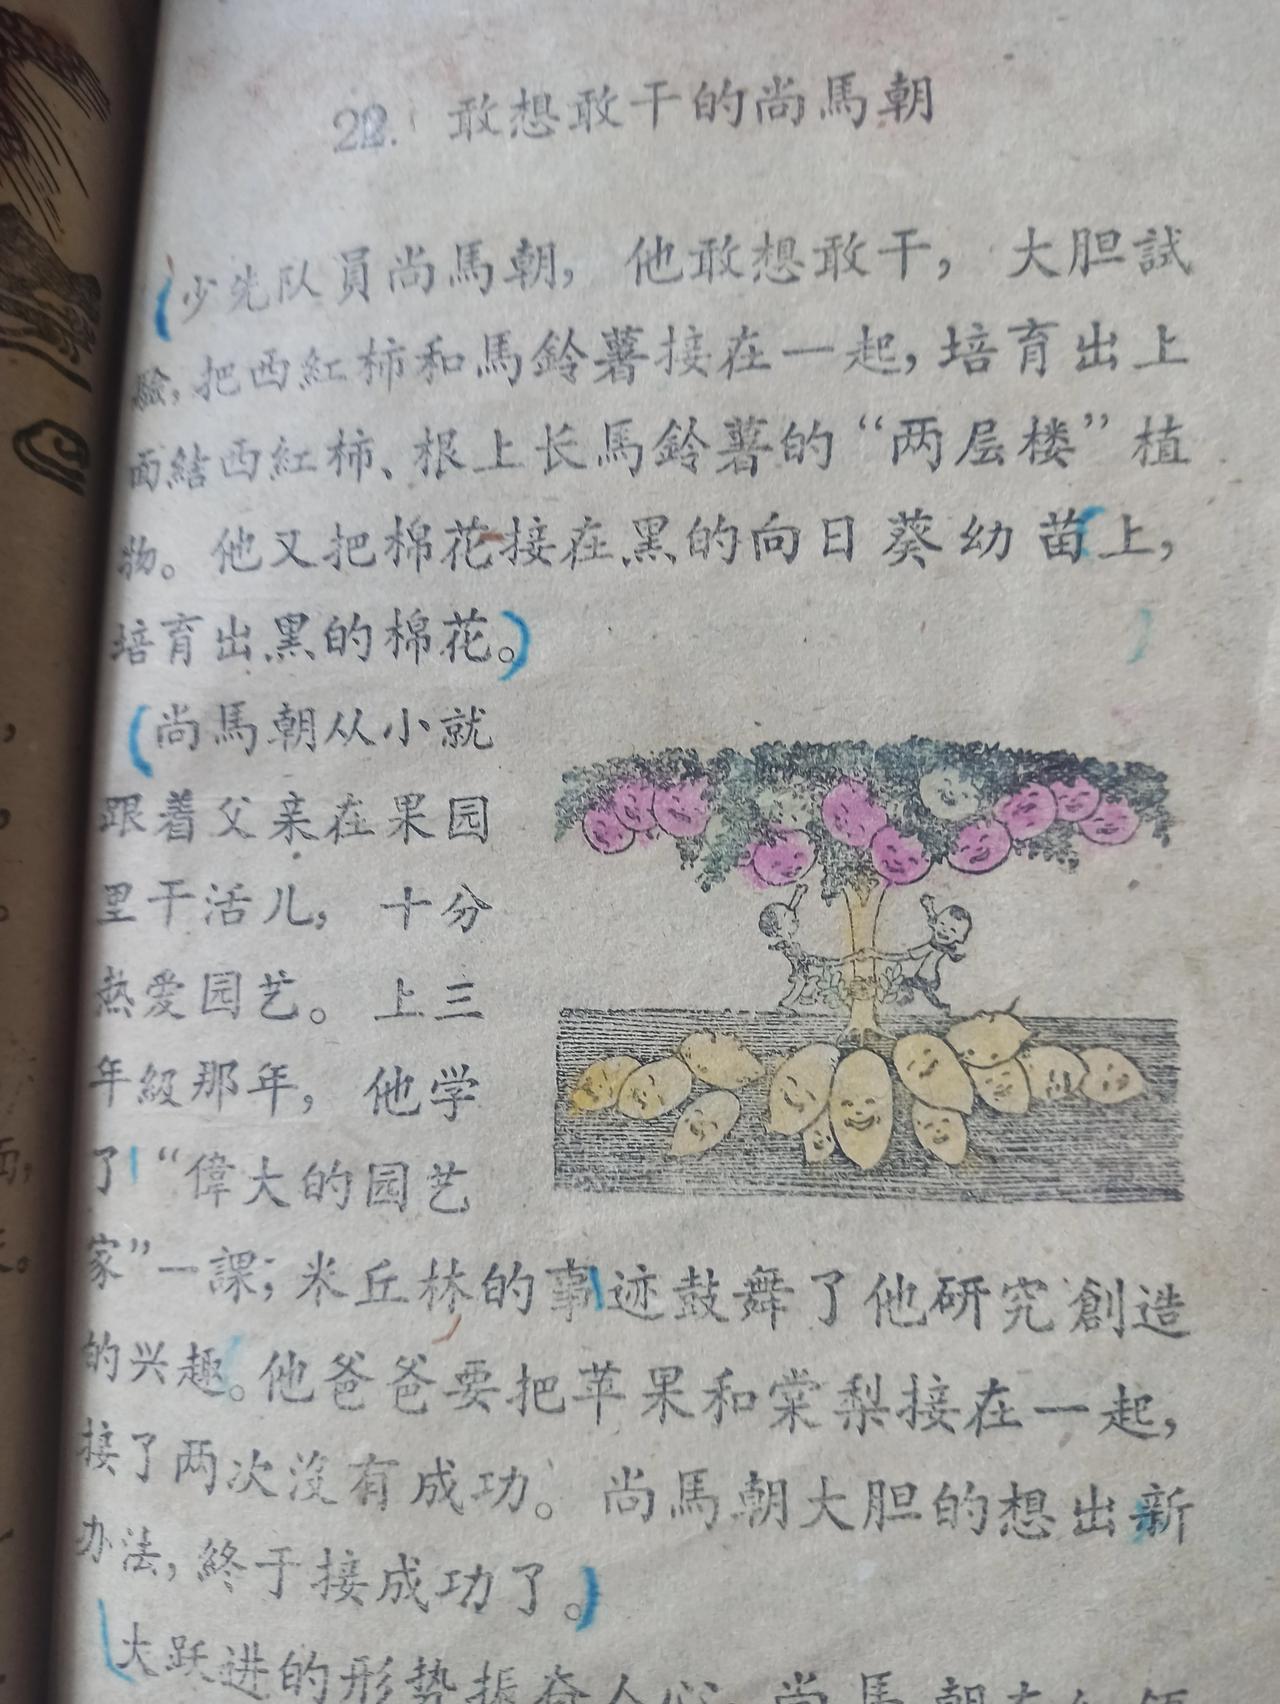 22. 敢想敢干的尚馬朝
少先队員尚馬朝，他敢想敢干，大胆試
驗，把西紅柿和馬鈴薯接在一起，培育出上
面結西紅柿、根上长馬鈴薯的“两层楼”植
物。他又把棉花接在黑的向日葵幼苗上，
培育出黑的棉花。
尚馬朝从小就
跟着父亲在果园
里干活儿，十分
热爱园艺。上三
年級那年，他学
了“偉大的园艺
家”一課；米丘林的事迹鼓舞了他研究創造
的兴趣。他爸爸要把苹果和棠梨接在一起，
接了两次沒有成功。尚馬朝大胆的想出新
办法，終于接成功了。
大跃进的形势振奋人心，尚馬朝